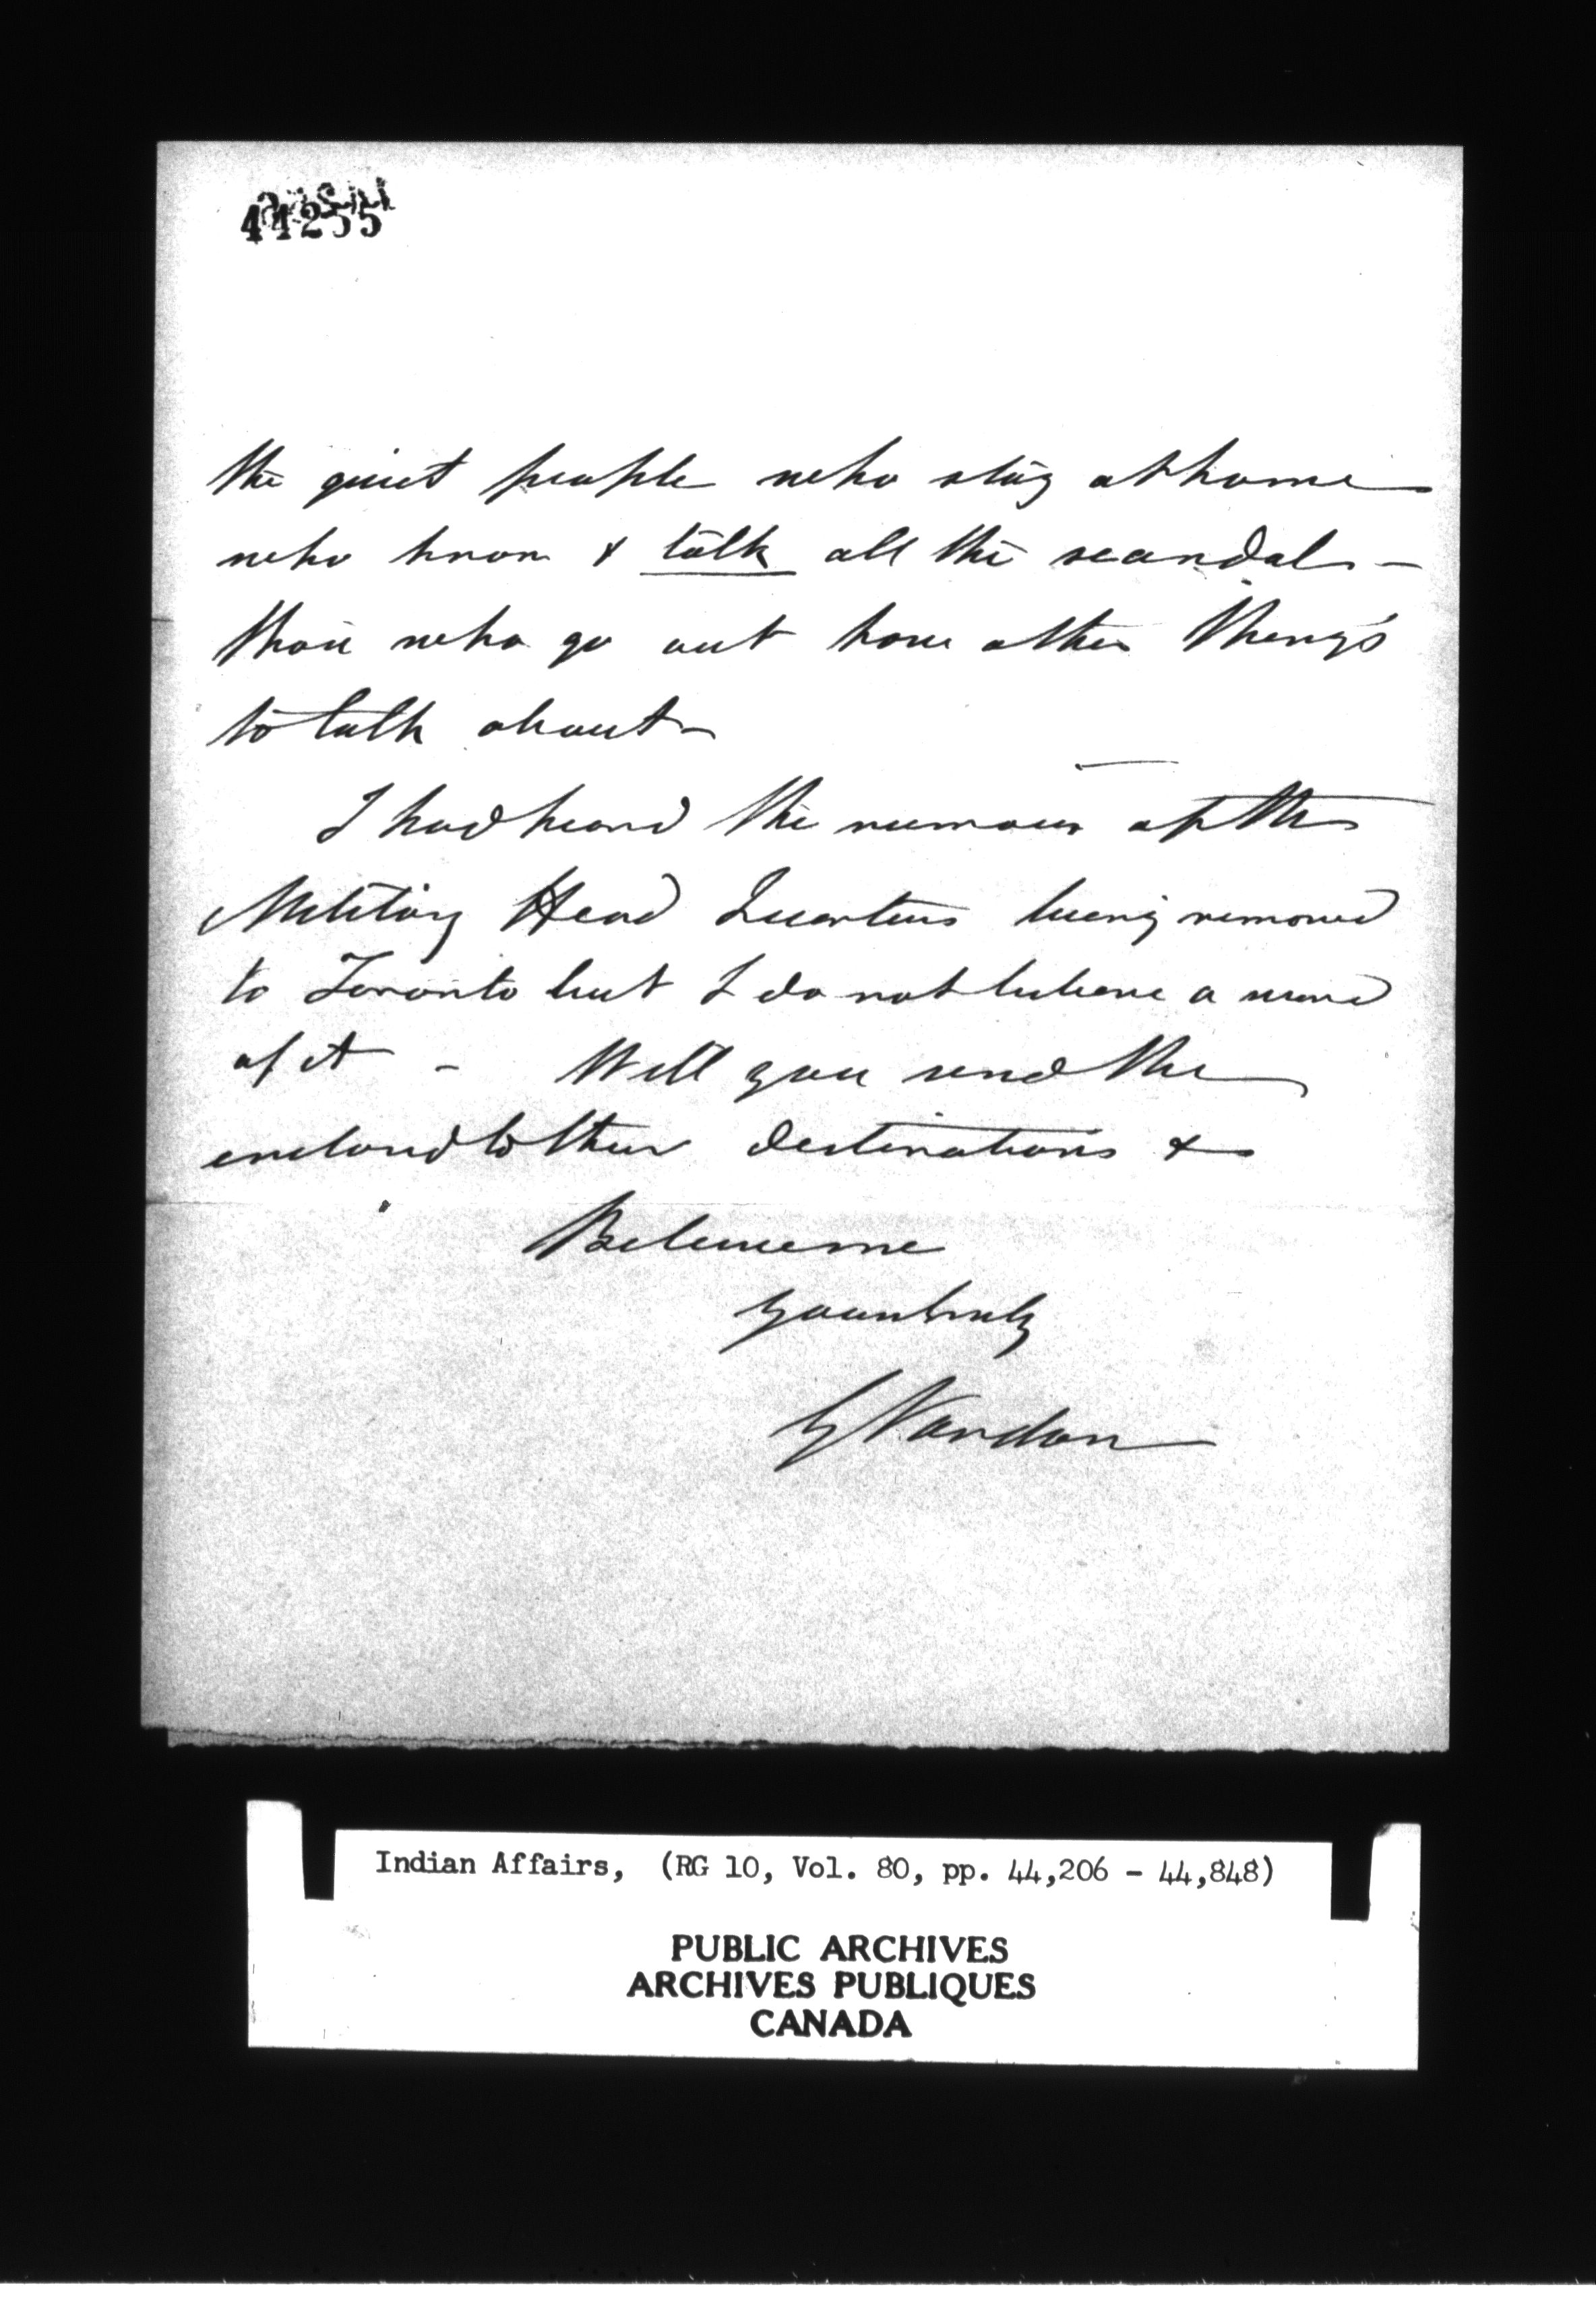 44255
the quiet people who stay at home
who know & talk all the scandal -
those who go out have other things
to talk about -
I had heard the rumour of the
Military Head Quarters being removed
to Toronto but I do not believe a word
of it - Will you send the
enclosed to their destinations &
Believe me
yours truly
G Vardon
Indian Affairs, (RG 10, Vol. 80, pp. 44,206 - 44,848)
PUBLIC ARCHIVES
ARCHIVES PUBLIQUES
CANADA